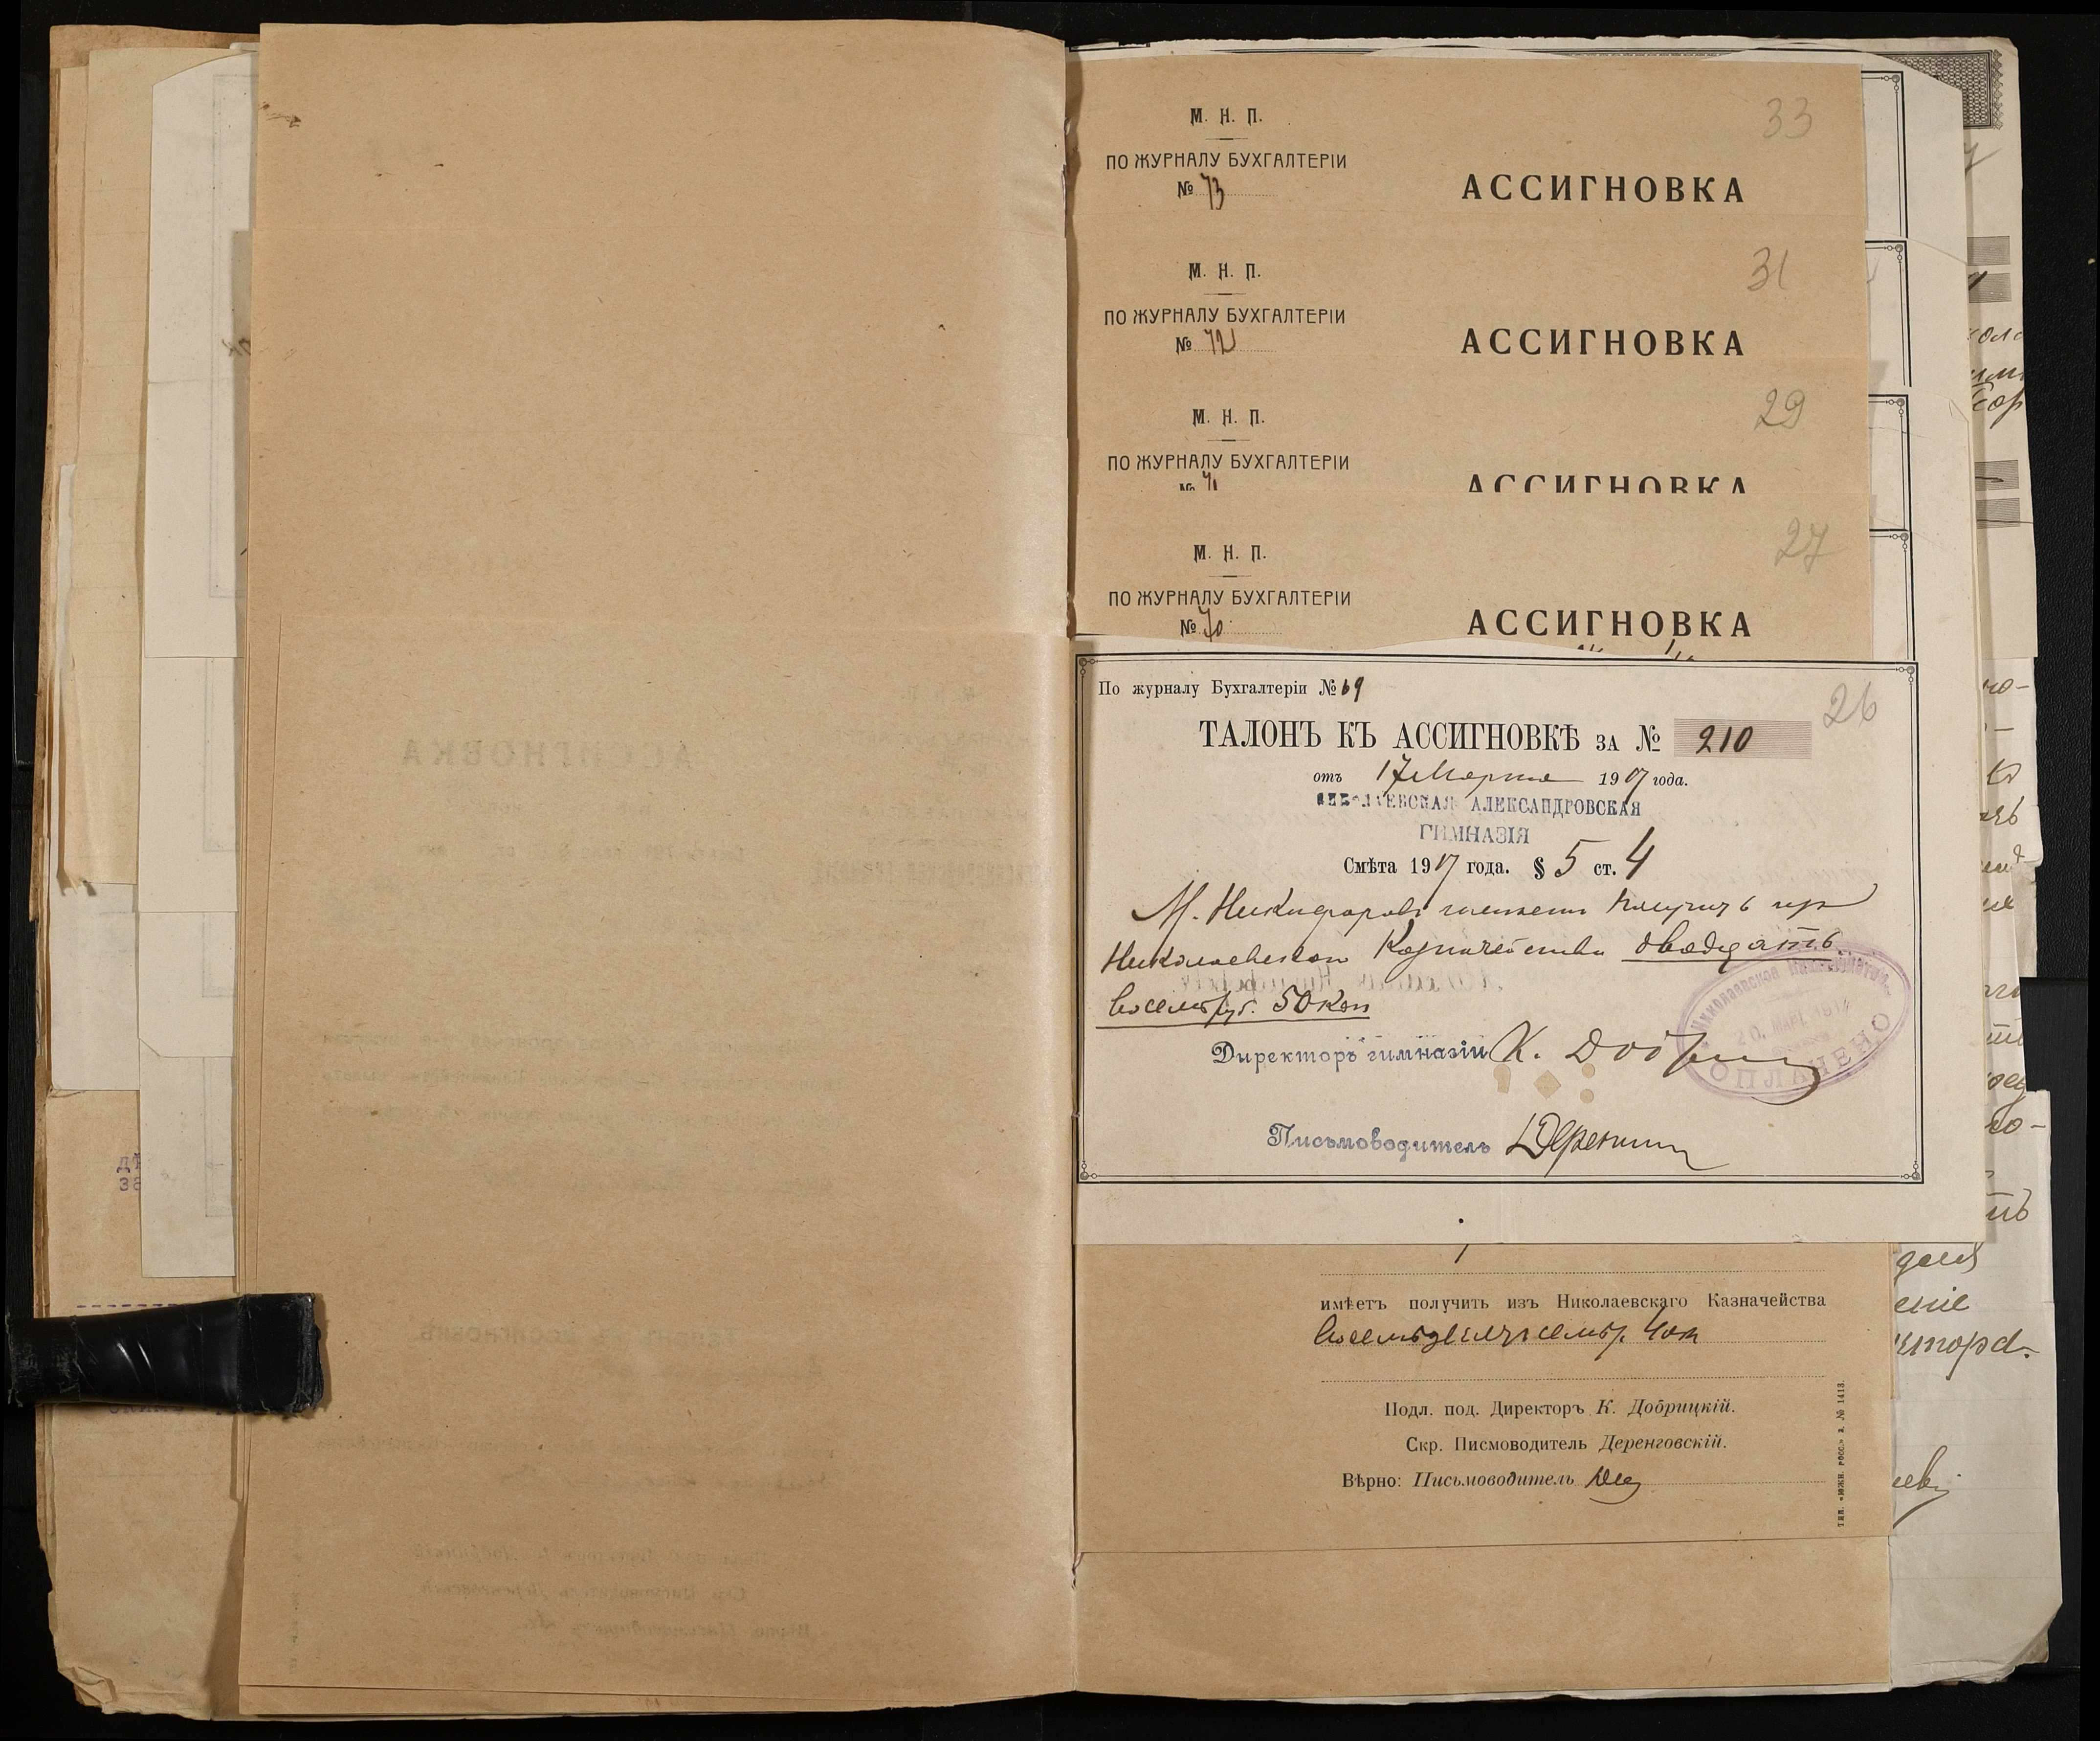 М. Н. П.
ПО ЖУРНАЛУ БУХГАЛТЕРІИ
№ 73
АССИГНОВКА
33
М. Н. П.
ПО ЖУРНАЛУ БУХГАЛТЕРІИ
№ 72
АССИГНОВКА
31
М. Н. П.
ПО ЖУРНАЛУ БУХГАЛТЕРІИ
№ 71
АССИГНОВКА
29
М. Н. П.
ПО ЖУРНАЛУ БУХГАЛТЕРІИ
№ 70
АССИГНОВКА
27
По журналу Бухгалтеріи № 69
26
ТАЛОНЪ КЪ АССИГНОВКѢ за № 210
отъ 17 Марта 1917 года.
НИКОЛАЕВСКАЯ АЛЕКСАНДРОВСКАЯ
ГИМНАЗІЯ
Смѣта 1917 года. § 5 ст. 4
М. Никифоровъ имѣетъ получить изъ
Николаевскаго Казначейства двадцать
восемь руб. 50 коп
Николаевское Казначейство
20. МАР. 1917
ОПЛАЧЕНО
Директоръ гимназіи К.
Письмоводитель
имѣетъ получить изъ Николаевскаго Казначейства
восемьдесятъ семь р. 4 коп
Подл. под. Директоръ К. Добрицкій.
Скр. Писмоводитель Деренговскій.
Вѣрно: Письмоводитель
ТИП. «ЮЖН. РОСС.» з. № 1413.